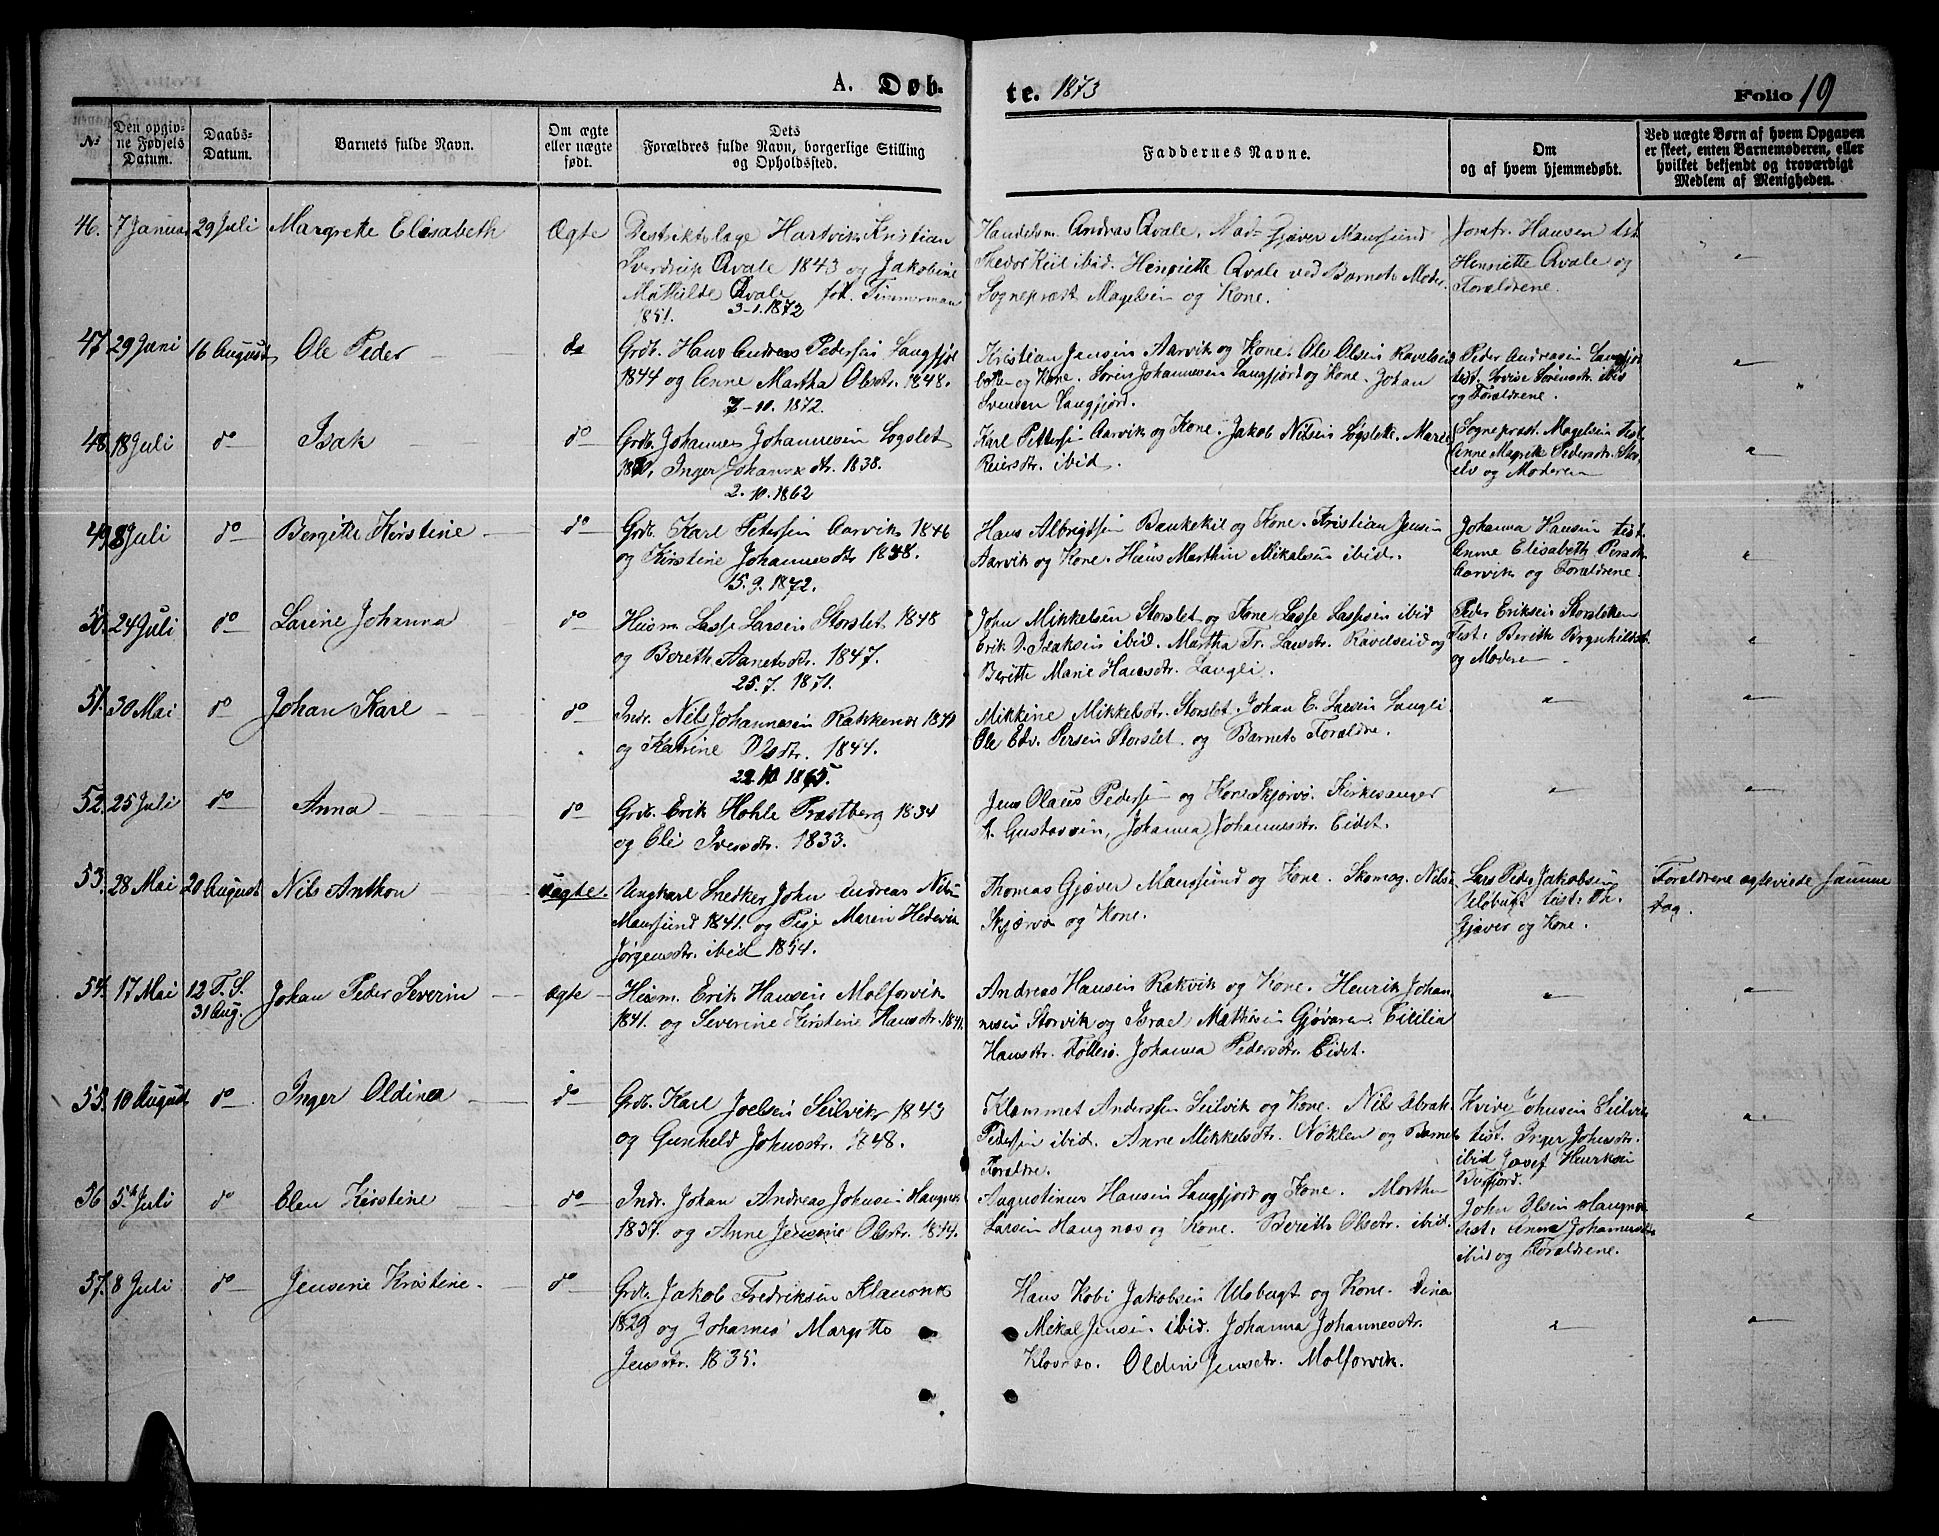 A. Døb-
te. 1873
Folio 19
No
Den opgiv-
ne Fødsels
Datum.
Daabs-
Datum.
Barnets fulde Navn.
Om ægte
eller uægte
født.
Dets
Forældres fulde Navn, borgerlige Stilling
og Opholdssted.
Faddernes Navne.
Om
og af hvem hjemmedøbt.
Ved uægte Børn af hvem Opgaven
er skeet, enten Barnemoderen, eller
hvilket bekjendt og troværdigt
Medlem af Menigheden.
46. 7 Januar 29 Juli Margrethe Elisabeth Ægte
Destriktslæge Hartvik Kristian
Sverdrup Qvale 1843 og Jakobine
Mathilde Qvale fød. Timmerman
1851. 3-1.1872
Handelsm. Andreas Qvale. Mad. Gjæver Maursund
Theodor Kiil ibid. Henriette Qvale ved Barnets Moder.
Sogneprest Magelsen og Kone.
Jomfr. Hansen test.
Henriette Qvale og
Forældrene.
"
47. 29 Juni 16 August Ole Peder do
Grdb. Hans Andreas Pedersen Langfjor
1844 og Anne Martha Olsdtr. 1848.
7-10. 1872.
Kristian Jensen Aarvik og Kone. Ole Olsen Ravelseid
og Kone. Søren Johannesen Langfjord og Kone. Johan
Svendsen Langfjord.
Peder Andreasen Langfjor
test. Lovise Sørensdtr. ibid
og Forældrene.
"
48. 18 Juli do Isak do
Grdb. Johannes Johannesen Sogslet
Inger Johansdtr. 1838.
2. 10. 1862
Karl Pettersen Aarvik og Kone. Jakob Nilsen Sogslett. Marie
Reiersdtr. ibid.
Sogneprest Magelsen test.
Anne Magrete Pedersdtr. Stor
elv og Moderen
"
49. 8 Juli do Bergitte Kirstine do
Grdb. Karl Petersen Aarvik 1846
og Kirstine Johannesdtr 1848.
15. 9. 1872.
Hans Albrigtsen Baukekil og Kone. Kristian Jensen
Aarvik og Kone. Hans Marthin Mikalsen ibid.
Johanna Hansen test.
Anne Elisabeth Persdtr.
Aarvik og Forældrene.
"
50. 24 Juli do Larine Johanna do
Husm. Lasse Larsen Storslet 1848
og Bereth Aanetsdtr. 1847.
25. 7. 1871.
John Mikkelsen Storslet og Kone Lasse Lassesen ibid
Erik D. Isaksen ibid. Martha Fr. Larsdtr. Ravelseid og
Beritte Marie Hansdtr. Langli.
Peder Eriksen Storsletten
Test: Bereth Brynhildsdtr.
og Moderen
"
51. 30 Mai do Johan Karl do
Indr. Nils Johannesen Rakkenæs 1840
og Katrine Olsdtr. 1844.
22 10 1865
Mikkine Mikkelsdtr. Storslet Johan E. Larsen Langli
Ole Edv. Persen Storslet. og Barnets Forældre.
"
"
52. 25 Juli do Anna do
Grdb. Erik Hohle Præstberg 1834
og Eli Iversdtr. 1833.
Jens Olaus Pedersen og Kone Skjervø. Kirkesanger
A. Gustavsen, Johanna Johannesdtr. Eidet.
"
"
53. 28 Mai 20 August Nils Anthon uægte.
Ungkarl Snedker John Andreas Nilsen
Maursund 1841. og Pige Maren Hedevik
Jørgensdtr. ibid 1854.
Thomas Gjæver Maursund og Kone. Skomag. Nilsen
Skjærvø og Kone.
Lars Peder Jakobsen
Uløbugt test: Th.
Gjæver og Kone.
Forældrene ægteviede samme
Dag.
54. 17 Mai 12 T. S.
31 Aug. Johan Peder Severin Ægte
Husm. Erik Hansen Molforvik
1841. og Severine Kirstine Hansdtr. 1841.
Andreas Hansen Rakvik og Kone. Henrik Johan-
nesen Storvik og Israel Mathisen Gjøvaren. Cicilia
Hansdtr. Follesø. Johanna Pedersdtr. Eidet.
"
"
55. 10 August do Inger Oldinea do
Grdb. Karl Joelsen Seilvik 1843
og Gunheld Johnsdtr. 1848.
Klemmet Andersen Seilvik og Kone. Nils Abrah.
Pedersen ibid. Anne Mikkelsdtr. Nøklen og Barnets
Forældre.
Kvive Johnsen Seilvik
test. Inger Johnsdtr.
ibid Josef Henriksen
Burfjord.
"
56 5te Juli do Elen Kirstine do
Indr. Johan Andreas Johnsen Haugnæs
1837. og Anne Jensine Olsdtr. 1844.
Augustinus Hansen Langfjord og Kone. Morthen
Larsen Haugnæs og Kone. Beritte Olsdtr. ibid.
John Olsen Haugnæs
test: Anna Johannesdtr
ibid og Forældrene.
"
57. 8 Juli do Jensine Kristine do
Grdb. Jakob Fredriksen Klauvnæs
1829 og Johanne Margitte
Jensdtr. 1835.
Hans Kobi Jakobsen Uløbugt og Kone. Dina
Mekal Jensen ibid. Johanna Johannesdtr.
Klovnæs. Oldine Jensdtr. Molforvik.
"
"